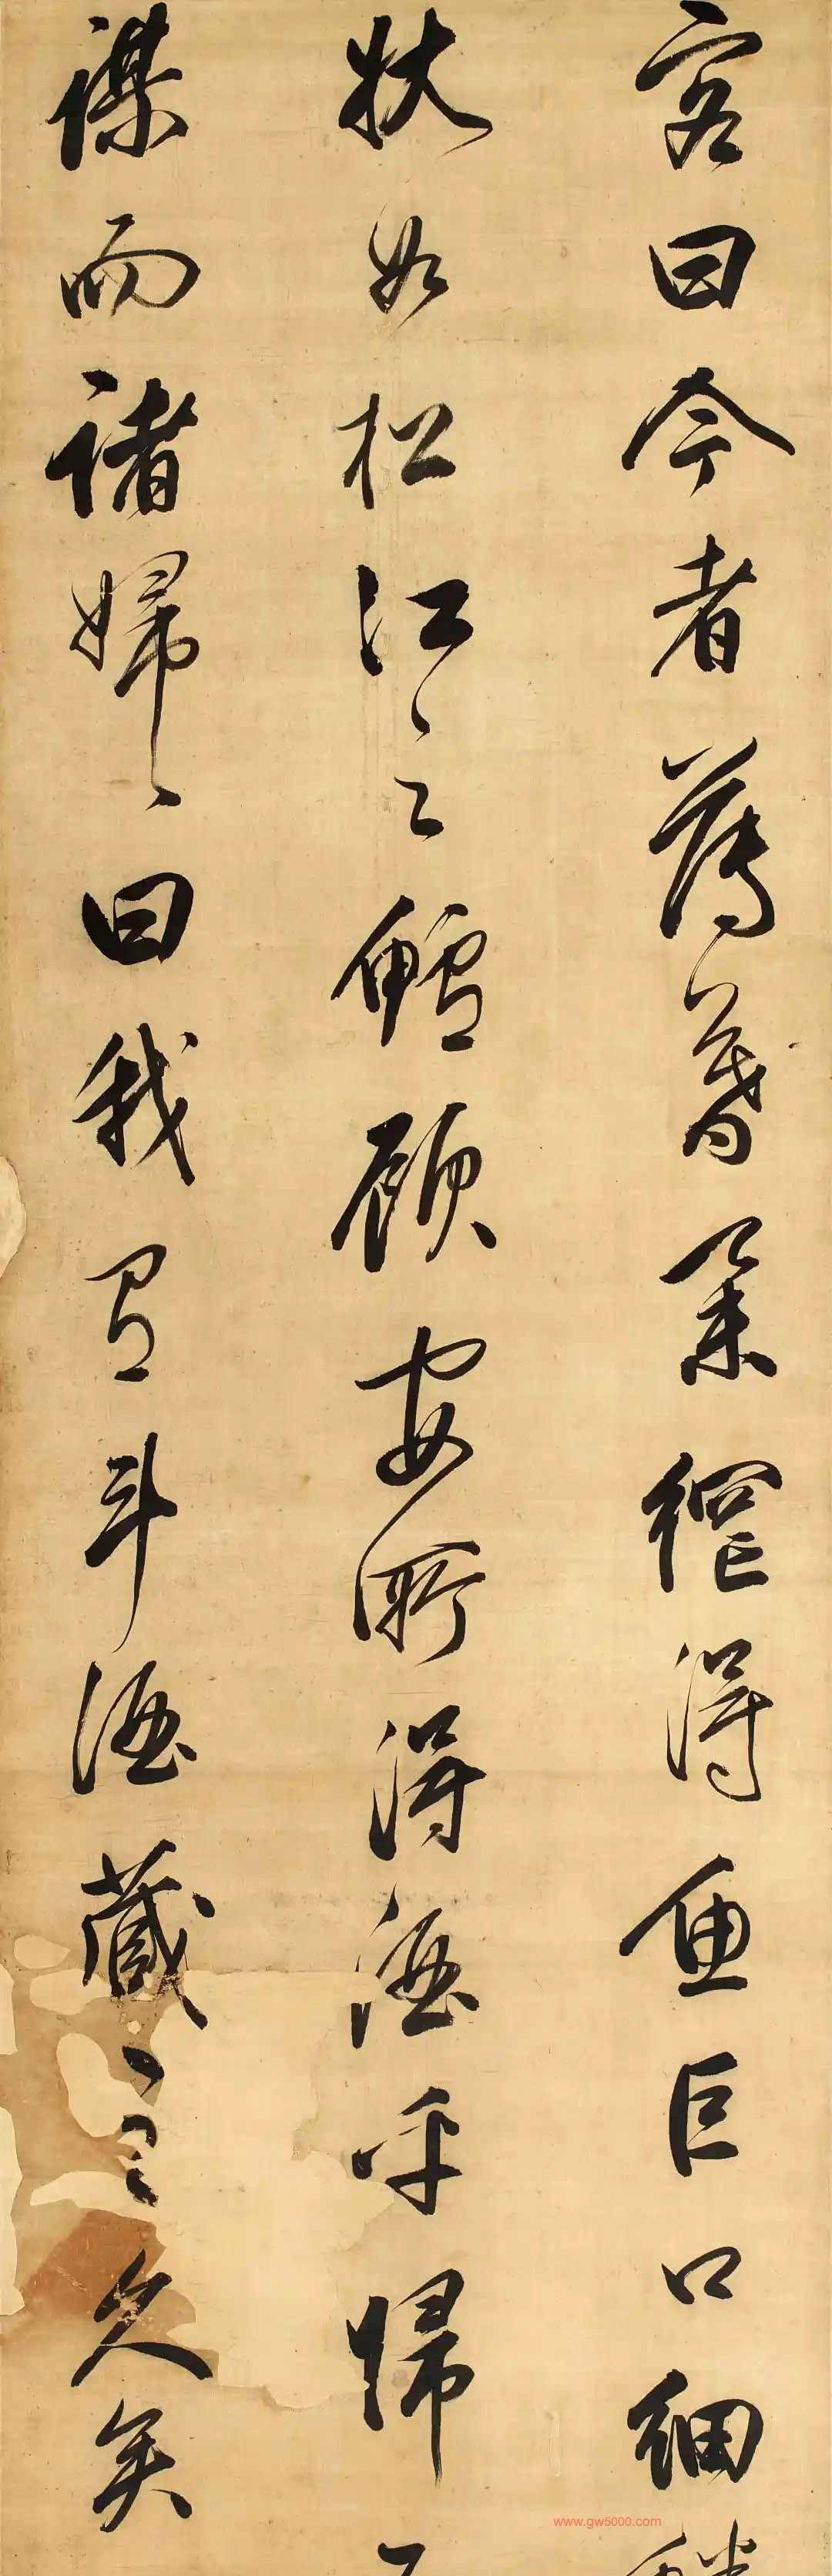 客曰今者薄暮舉網得魚巨口細
狀如松江之鱸顧安所得酒乎歸
謀而諸婦〻曰我有斗酒藏之久矣
www.gw5000.com